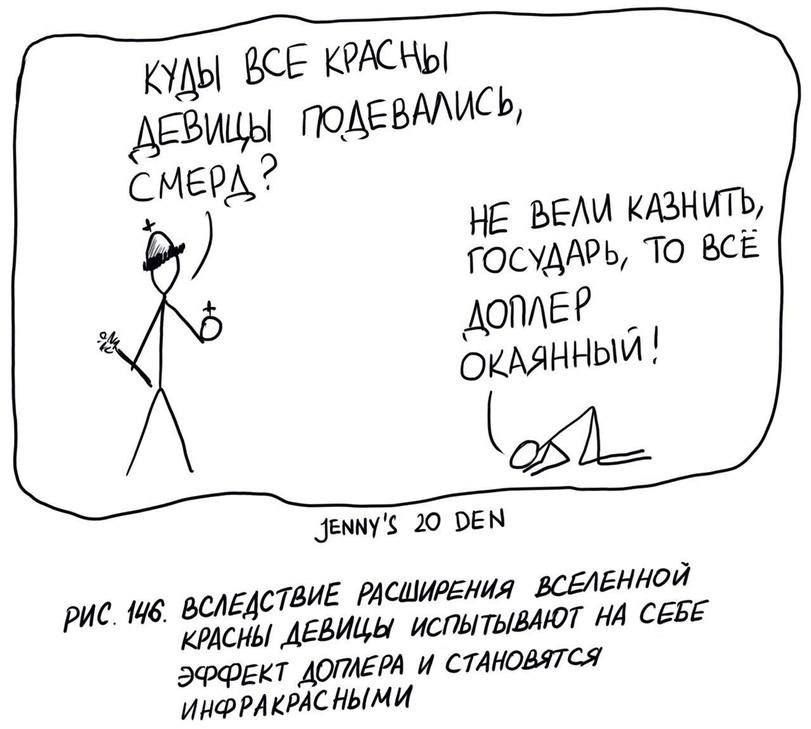 КУДЫ ВСЕ КРАСНЫ
ДЕВИЦЫ ПОДЕВАЛИСЬ,
СМЕРД?
НЕ ВЕЛИ КАЗНИТЬ,
ГОСУДАРЬ, ТО ВСЁ
ДОПЛЕР
ОКАЯННЫЙ!
JENNY'S 20 DEN
РИС. 146. ВСЛЕДСТВИЕ РАСШИРЕНИЯ ВСЕЛЕННОЙ
КРАСНЫ ДЕВИЦЫ ИСПЫТЫВАЮТ НА СЕБЕ
ЭФФЕКТ ДОПЛЕРА И СТАНОВЯТСЯ
ИНФРАКРАСНЫМИ